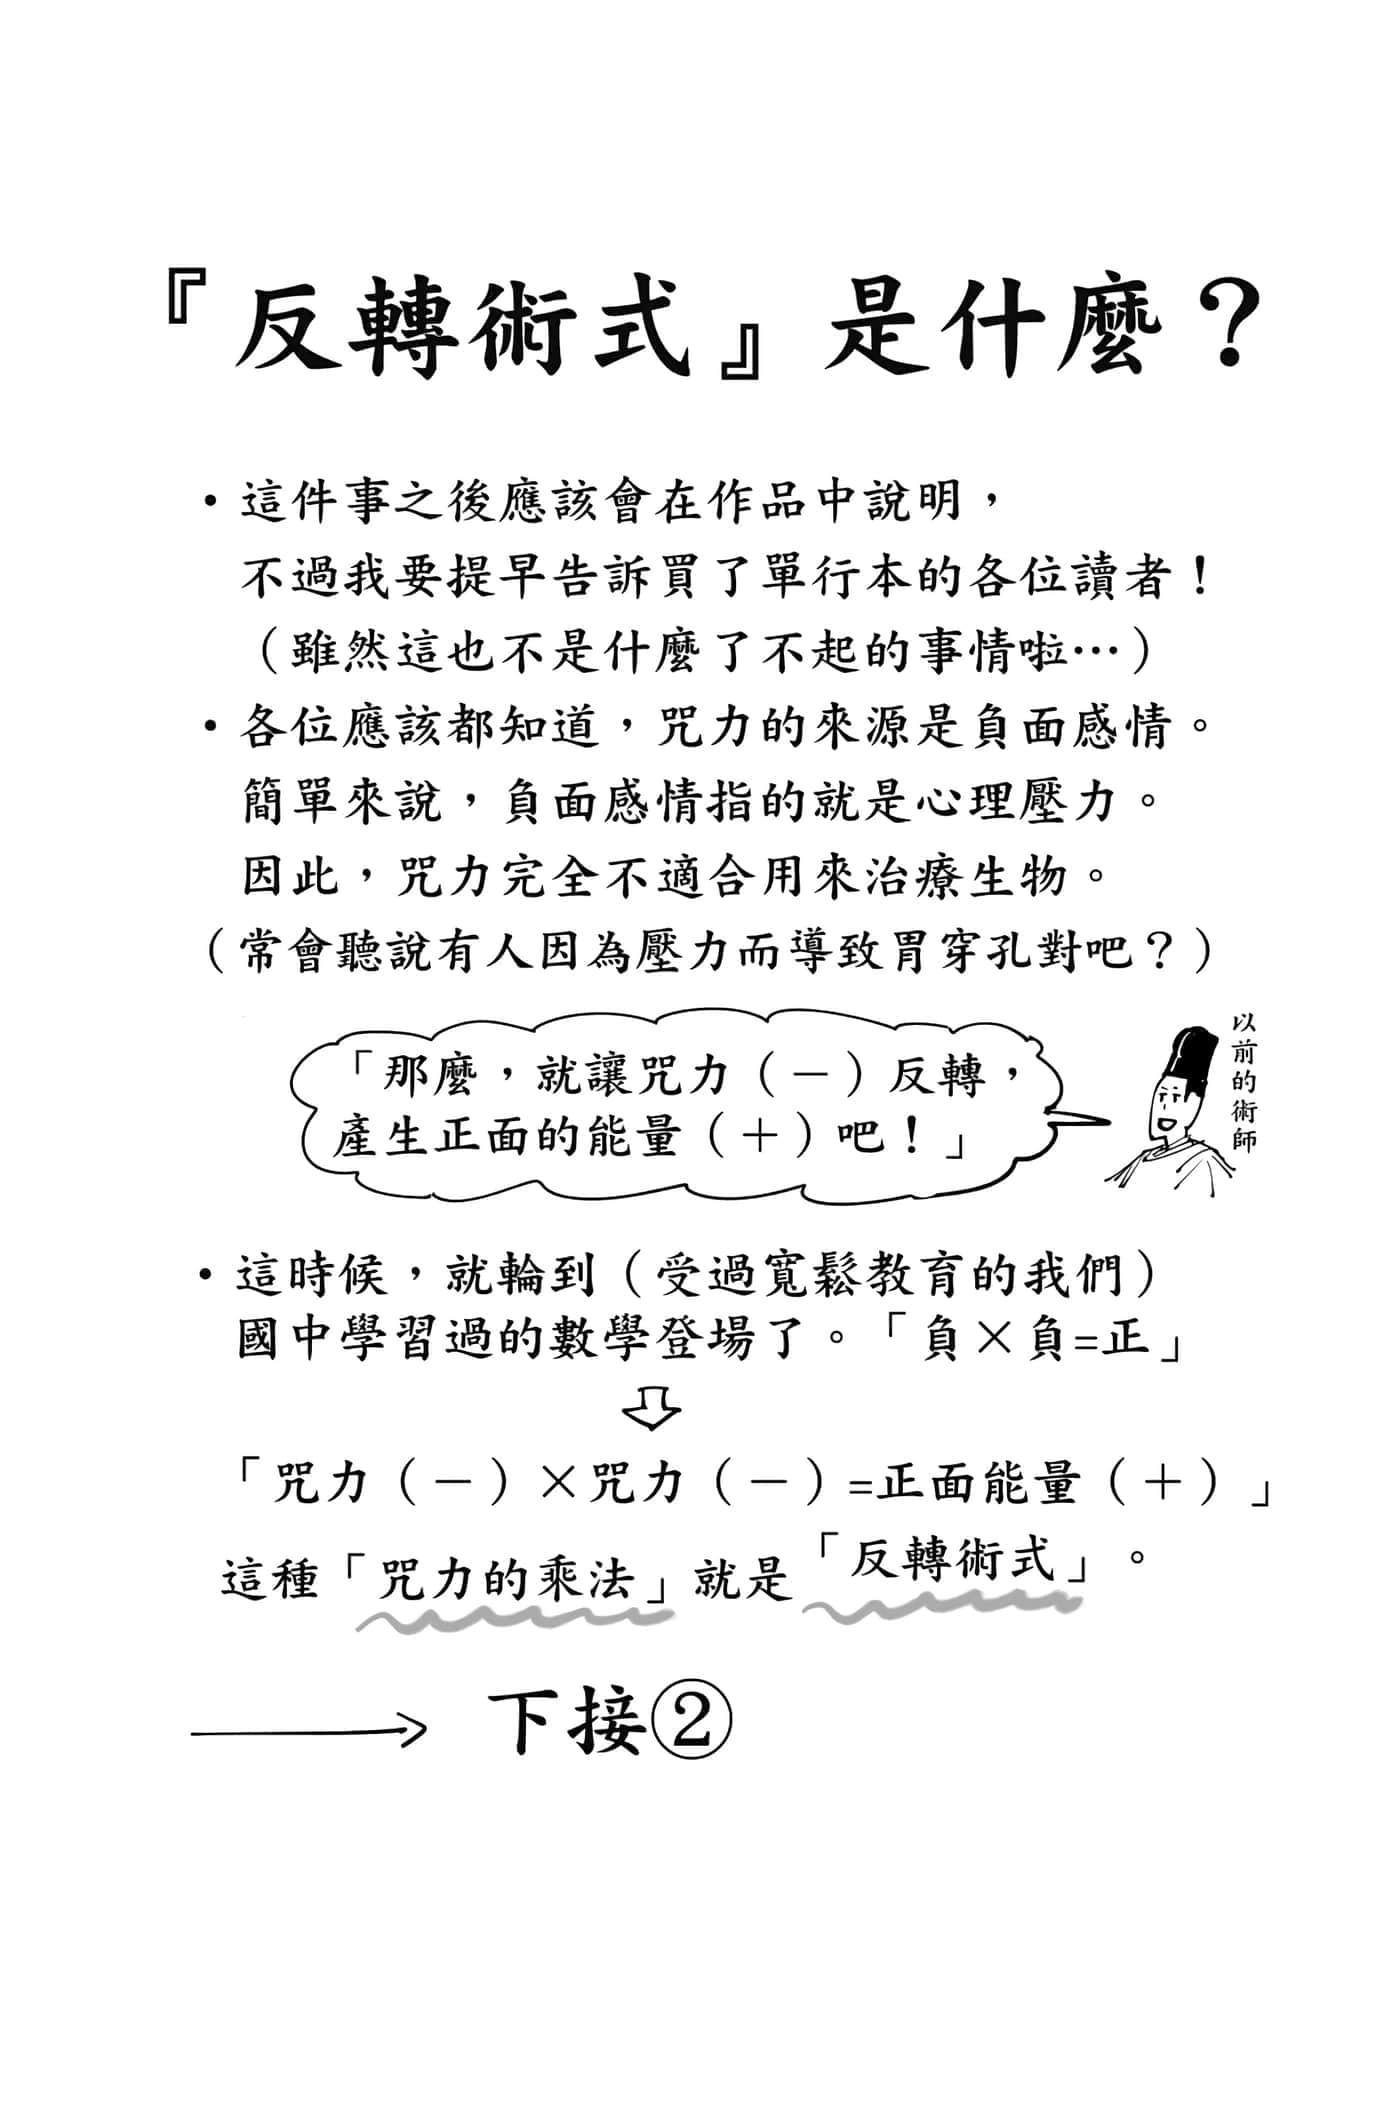 『反轉術式』是什麼？
・這件事之後應該會在作品中說明，
不過我要提早告訴買了單行本的各位讀者！
（雖然這也不是什麼了不起的事情啦…）
・各位應該都知道，咒力的來源是負面感情。
簡單來說，負面感情指的就是心理壓力。
因此，咒力完全不適合用來治療生物。
（常會聽說有人因為壓力而導致胃穿孔對吧？）
「那麼，就讓咒力（－）反轉，
產生正面的能量（＋）吧！」
以前的術師
・這時候，就輪到（受過寬鬆教育的我們）
國中學習過的數學登場了。「負×負=正」
「咒力（－）×咒力（－）=正面能量（＋）」
這種「咒力的乘法」就是「反轉術式」。
下接②